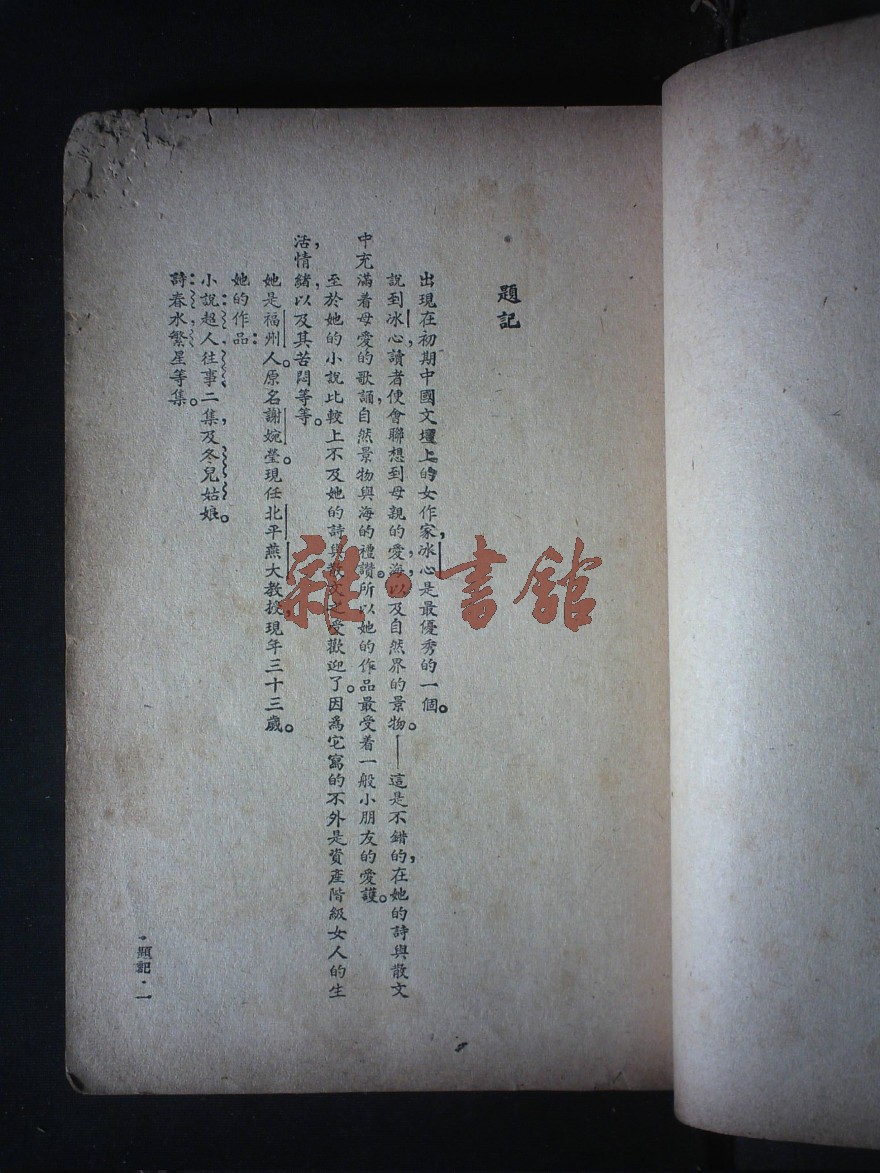 題記
出現在初期中國文壇上的女作家，冰心是最優秀的一個。
說到冰心，讀者便會聯想到母親的愛，海，以及自然界的景物。——這是不錯的，在她的詩與散文
中充滿着母愛的歌誦，自然景物與海的禮讚。所以她的作品最受着一般小朋友的愛護。
至於她的小說比較上不及她的詩與散文之受歡迎了。因為它寫的不外是資產階級女人的生
活，情緒，以及其苦悶等等。
她是福州人。原名謝婉瑩。現任北平燕大教授，現年三十三歲。
她的作品：
小說：超人，往事二集，及冬兒姑娘。
詩：春水，繁星等集。
·題記·一
雜·書館